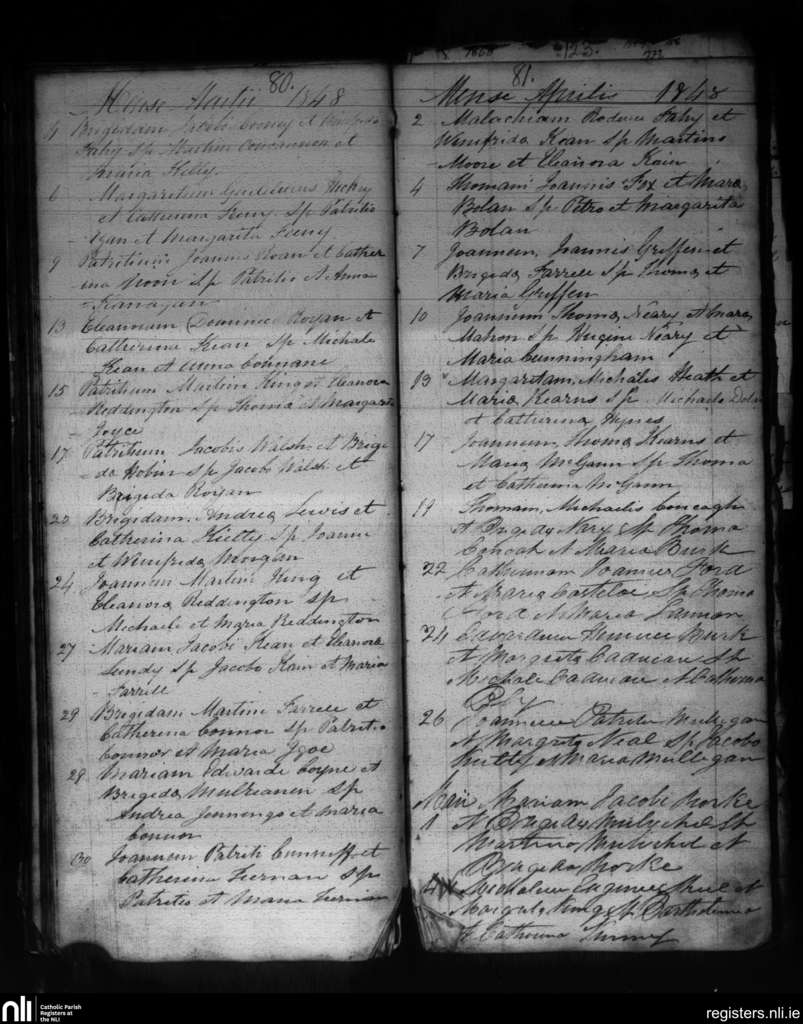 80.
Mense Martii 1848
4 Brigidam Jacobi Cooney et Winifrida
Fahy Sp Martin Concannon et
Maria Kelly
6 Margaritam Hickey
et Catherina Feeny Sp Patritio
Egan et Margarita Feeny
9 Patritium Joannis Roan et Cather
ina Noon Sp Patritio et Anna
Flanagan
13 Eleanoram Dominic Rogan et
Catherina Kean Sp Michale
Kean et Anna
15 Patritium Martin King et Eleanora
Reddington Sp Thoma et Margarit
Joyce
17 Patritium Jacobis Walsh et Brigi
da Hobin Sp Jacobo Walsh et
Brigida Rogan
20 Brigidam Andrea Lewis et
Catherina Kielty Sp Joanne
et Winefrida Mongan
24 Joannem Martini King et
Eleanora Reddington Sp
Michale et Maria Reddington
27 Mariam Jacobi Kean et Eleanora
Lundy Sp Jacobo Kean et Maria
Farrell
29 Brigidam Martini Farrell et
Catherina Connor Sp Patritio
Connor et Maria Igoe
28 Mariam Edwardi Coyne et
Brigida Mulreanen Sp
Andrea Jennengs et Maria
Connor
30 Joannem Patriti Cunniff et
Catherena Tiernan Sp
Patritio et Maria Tiernan
81.
Mense Aprilis 1848
2 Malachiam Roderici Fahy et
Wenifrida Koan Sp Martino
Moore et Eleanora Koin
4 Thomam Joannis Fox et Mara
Bolan Sp Petro et Margarita
Bolan
7 Joannem, Joannis Griffen et
Brigida Farrell Sp Thoma et
Maria Griffen
10 Joannem Thoma Neary et Mara
Mahon Sp Hugine Neary et
Maria Cunningham
13 Margaritam Michalis Heath et
Maria Kearns Sp Michaele Dolan
et Catherina Hynes
17 Joannem, Thoma Kearns et
Maria McGann Sp Thoma
et Catherina McGann
19 Thomam, Michaelis Coneagh
et Brigida Nary Sp Thoma
et Maria Burk
22 Catherinam Joannis Ford
et Maria Costeloe Sp Thoma
Ford et Maria Lannon
24 Edwardum Burk
et Margrita Caduian Sp
Michale Caduian et Catherina
26 Joannem Patriti Mulligan
et Margrita Neal Sp Jacobo
et Maria Mulligan
Maii Mariam Jacobi Rorke
1 et Brigida Sp
Martino et
Brigida Rorke
4 Michalem et
Margrita King Sp Bartholomeo
et Catherina
nli
Catholic Parish
Registers at
the NLI
registers.nli.ie